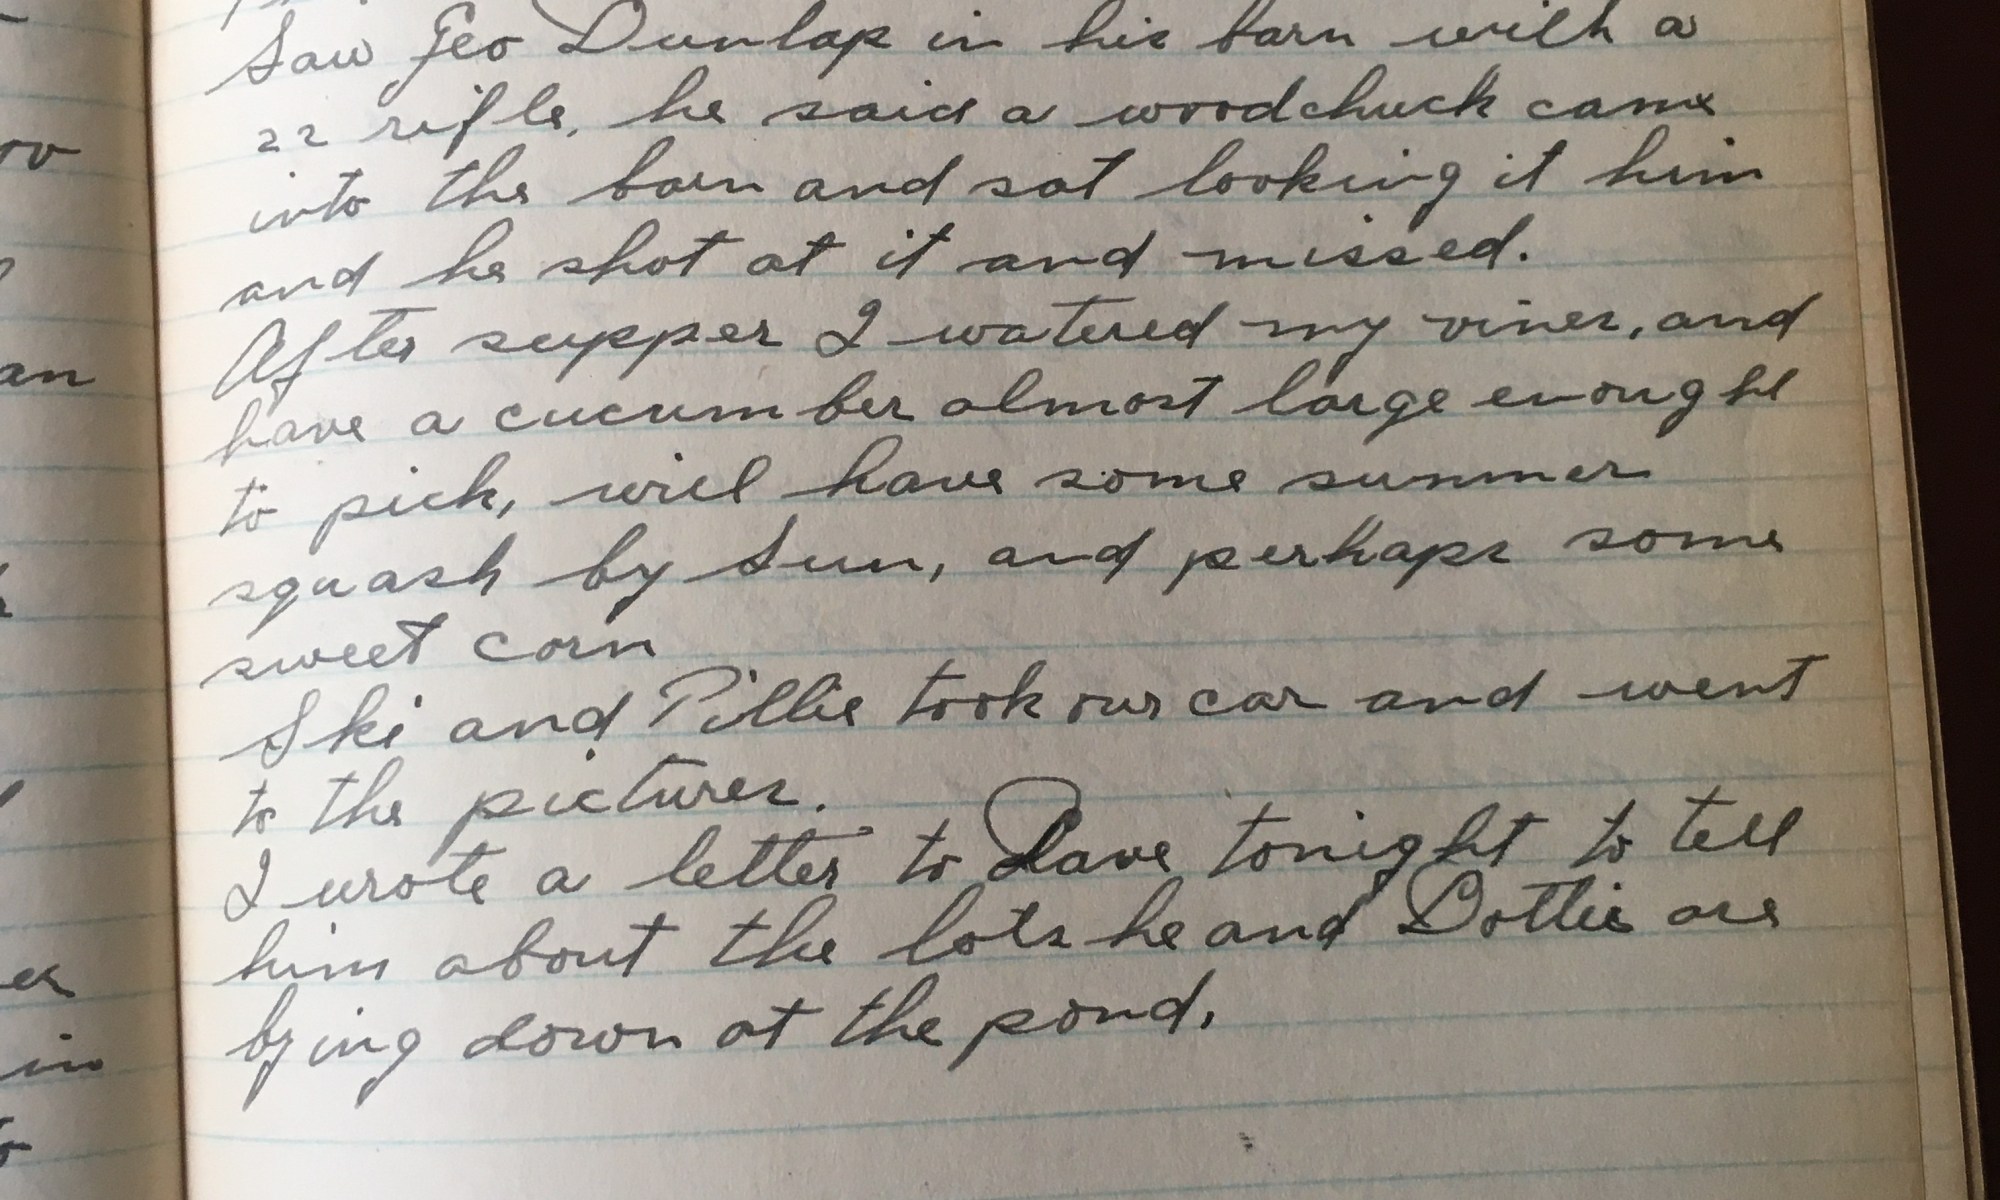 Saw Geo Dunlap in his barn with a
22 rifle, he said a woodchuck came
into the barn and sat looking it him
and he shot at it and missed.
After supper I watered my vines, and
have a cucumber almost large enough
to pick, will have some summer
squash by Sun, and perhaps some
sweet corn
Ski and Tillie took our car and went
to the pictures.
I wrote a letter to Dave tonight to tell
him about the lots he and Dottie are
bying down at the pond.
ov
an
er
in
to